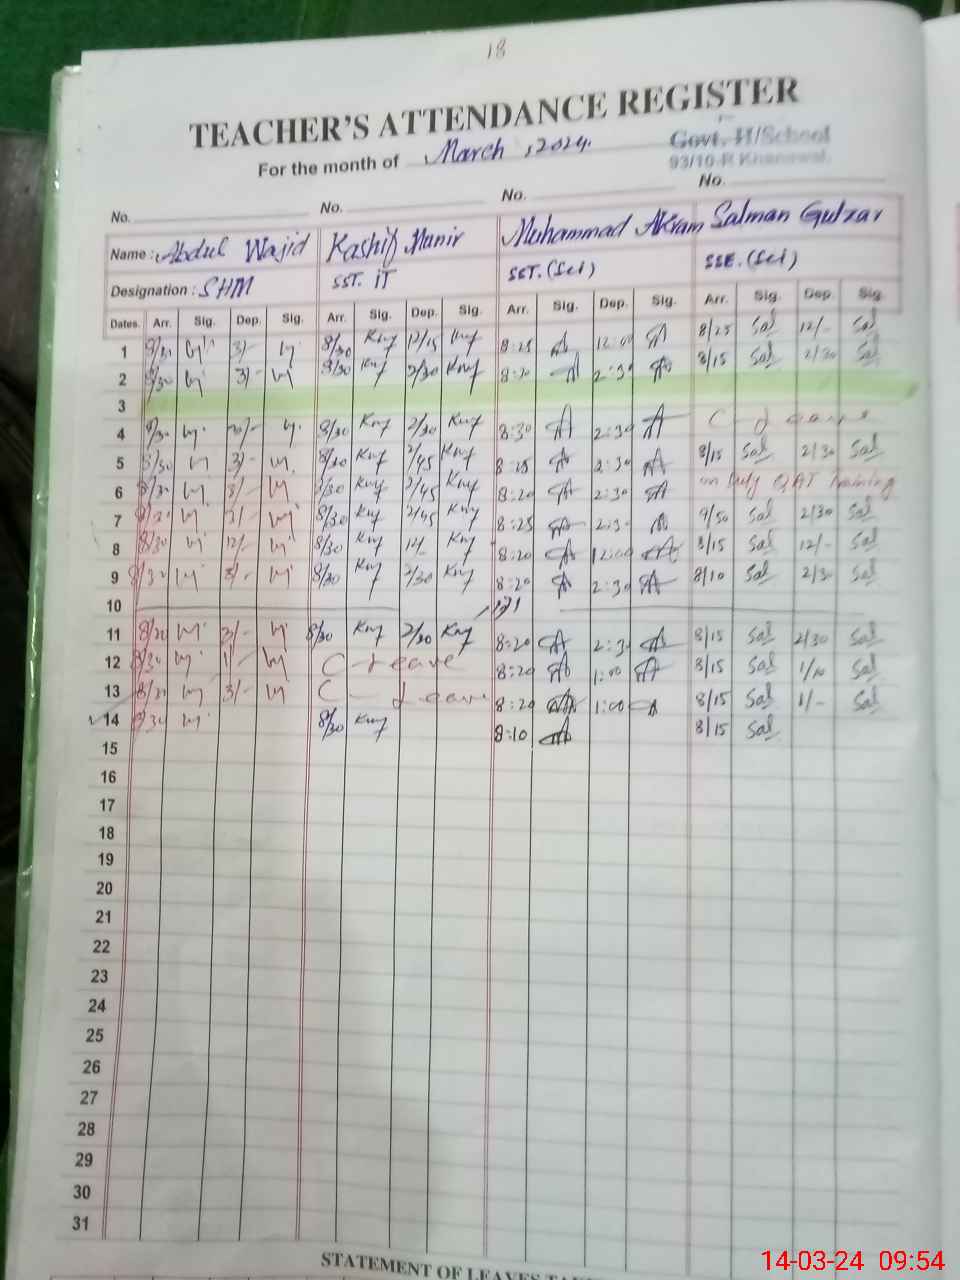 18
TEACHER'S ATTENDANCE REGISTER
For the month of March, 2024.
Govt. H/School
93/10-R Khanewal.
No. No. No. No.
Name : Abdul Wajid Kashif Munir Muhammad Akram Salman Gulzar
Designation : SHM SST. IT SST. (Sci) SSE. (Sci)
Dates. Arr. Sig. Dep. Sig. Arr. Sig. Dep. Sig. Arr. Sig. Dep. Sig. Arr. Sig. Dep. Sig.
1 8/30 3/- 8/30 12/15 8:25 12:00 8/25 Sal 12/- Sal
2 8/30 3/- 8/30 2/30 8:20 2:30 8/15 Sal 2/30 Sal
3
4 8/30 3/- 8/30 2/30 8:30 2:30 C - Leave
5 8/30 3/- 8/30 2/45 8:15 2:30 8/15 Sal 2/30 Sal
6 8/30 3/- 8/30 2/45 8:20 2:30 on Duty QAT Training
7 8/30 3/- 8/30 2/45 8:25 2:30 9/50 Sal 2/30 Sal
8 8/30 12/- 8/30 12/- 8:20 12:00 8/15 Sal 12/- Sal
9 8/30 3/- 8/30 2/30 8:20 2:30 8/10 Sal 2/30 Sal
10
11 8/30 3/- 8/30 2/30 8:20 2:30 8/15 Sal 2/30 Sal
12 8/30 1/- C - Leave 8:20 1:00 8/15 Sal 1/10 Sal
13 8/30 3/- C - Leave 8:20 1:00 8/15 Sal 1/- Sal
14 8/30 8/30 8:10 8/15 Sal
15
16
17
18
19
20
21
22
23
24
25
26
27
28
29
30
31
STATEMENT OF LEAVES
14-03-24 09:54